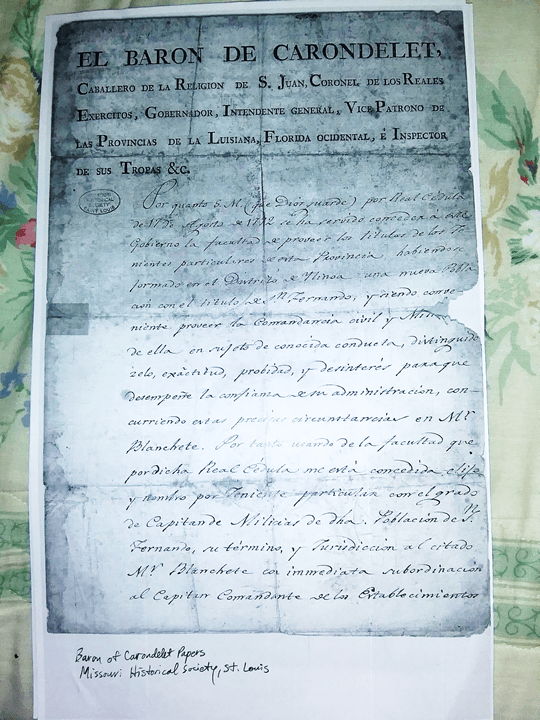 EL BARON DE CARONDELET,
CABALLERO DE LA RELIGION DE S. JUAN, CORONEL DE LOS REALES
EXERCITOS, GOBERNADOR, INTENDENTE GENERAL, VICE PATRONO DE
LAS PROVINCIAS DE LA LUISIANA, FLORIDA OCIDENTAL, É INSPECTOR
DE SUS TROPAS &c.
Por quanto S. M. (que Dios guarde) por Real Cédula
de Agosto de se ha servido conceder a este
Gobierno la facultad de proveer los titulos de los Te-
nientes particulares de esta Provincia habiendose
formado en el Distrito de Ylinoa una nueva Pobla
cion con el titulo de Sn. Fernando, y siendo conve-
niente proveer la Comandancia civil y
de ella en sujeto de conocida conducta, distinguido
zelo, exáctitud, probidad, y desinterés para que
desempeñe la confianza de su administracion, con-
curriendo estas precisas circunstancias en Mr.
Blanchete. Por tanto usando de la facultad que
por dicha Real Cédula me está concedida elijo
y nombro por Teniente particular con el grado
de Capitan de Milicias de dha. Poblacion de Sn.
Fernando, su término, y Jurisdiccion al citado
Mr. Blanchete con immediata subordinacion
al Capitan Comandante de los Establecimientos
Baron of Carondelet Papers
Missouri Historical Society, St. Louis